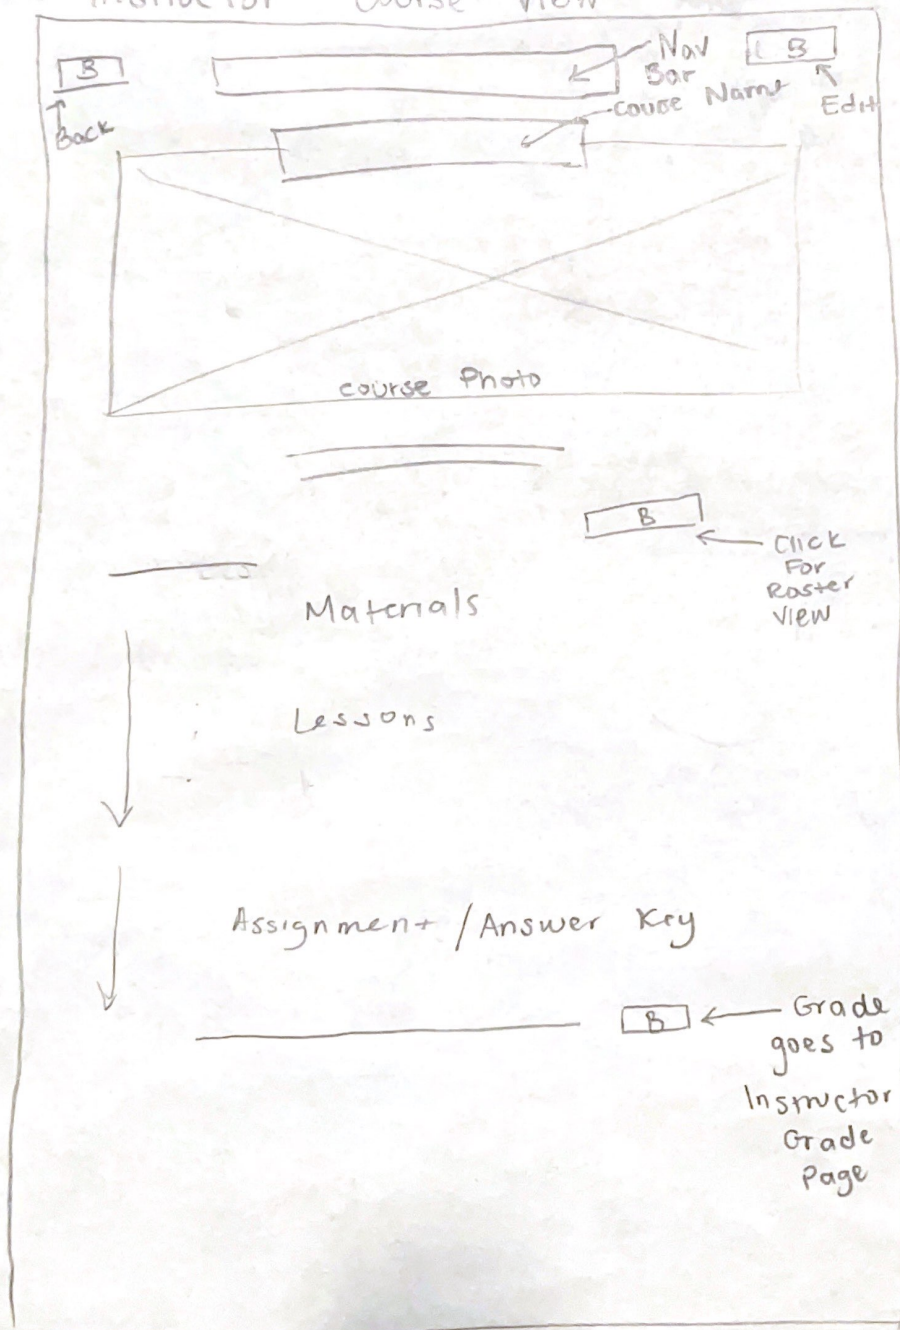 Instructor Course View
B
Back
Nav
Bar
B
Edit
Couse Name
Course Photo
B
Click
For
Roster
View
Materials
Lessons
Assignment / Answer Key
B
Grade
goes to
Instructor
Grade
Page